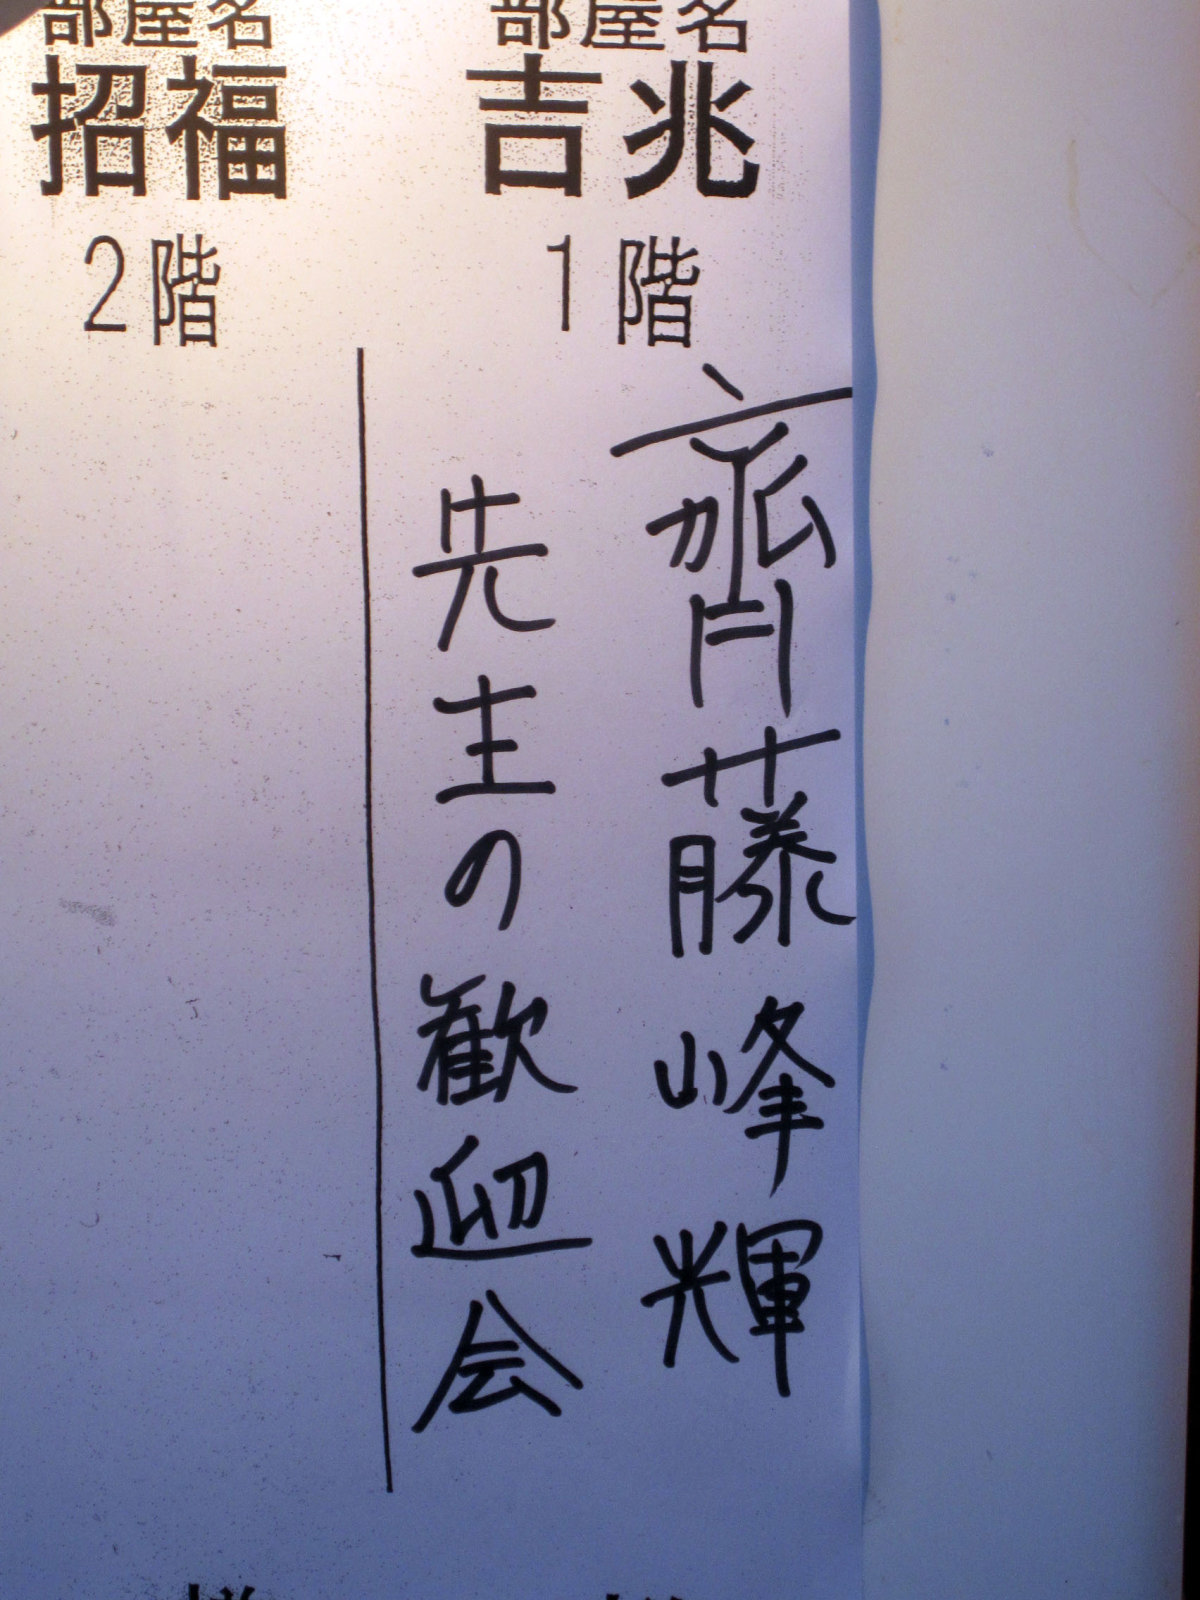 部屋名
吉兆
1階
齊藤峰輝
先主の歓迎会
部屋名
招福
2階